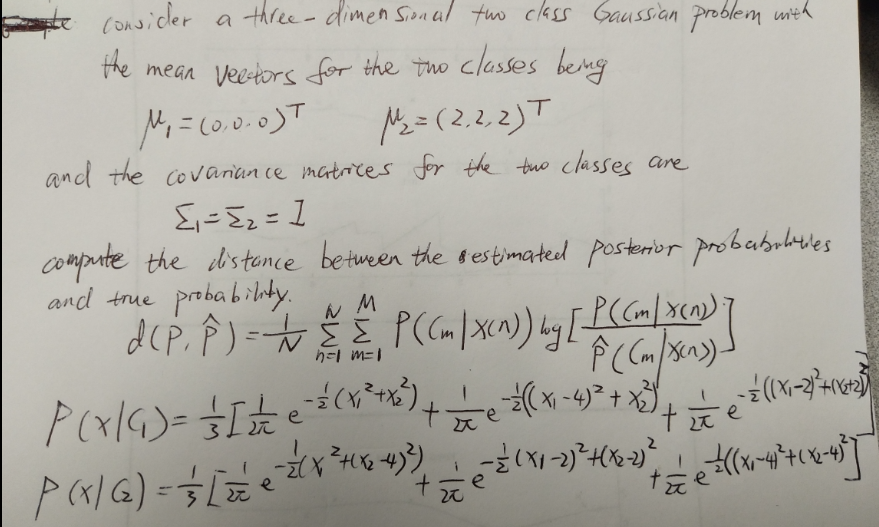 consider a three-dimensional two class Gaussian problem with
the mean vectors for the two classes being
μ₁=(0,0,0)ᵀ μ₂=(2,2,2)ᵀ
and the covariance matrices for the two classes are
Σ₁=Σ₂=I
compute the distance between the estimated posterior probabilities
and true probability.
d(P,P̂)=\frac{1}{N}\sum_{n=1}^{N}\sum_{m=1}^{M}P(Cm|x(n))log[\frac{P(Cm|x(n))}{P̂(Cm|x(n))}]
P(x|C₁)=\frac{1}{3}[\frac{1}{2π}e^{-\frac{1}{2}(x₁²+x₂²)}+\frac{1}{2π}e^{-\frac{1}{2}((x₁-4)²+x₂²)}+\frac{1}{2π}e^{-\frac{1}{2}((x₁-2)²+(x₂+2)²)}]
P(x|C₂)=\frac{1}{3}[\frac{1}{2π}e^{-\frac{1}{2}(x²+(x₂-4)²)}+\frac{1}{2π}e^{-\frac{1}{2}(x₁-2)²+(x₂-2)²}+\frac{1}{2π}e^{\frac{1}{2}((x₁-4)²+(x₂-4)²}]